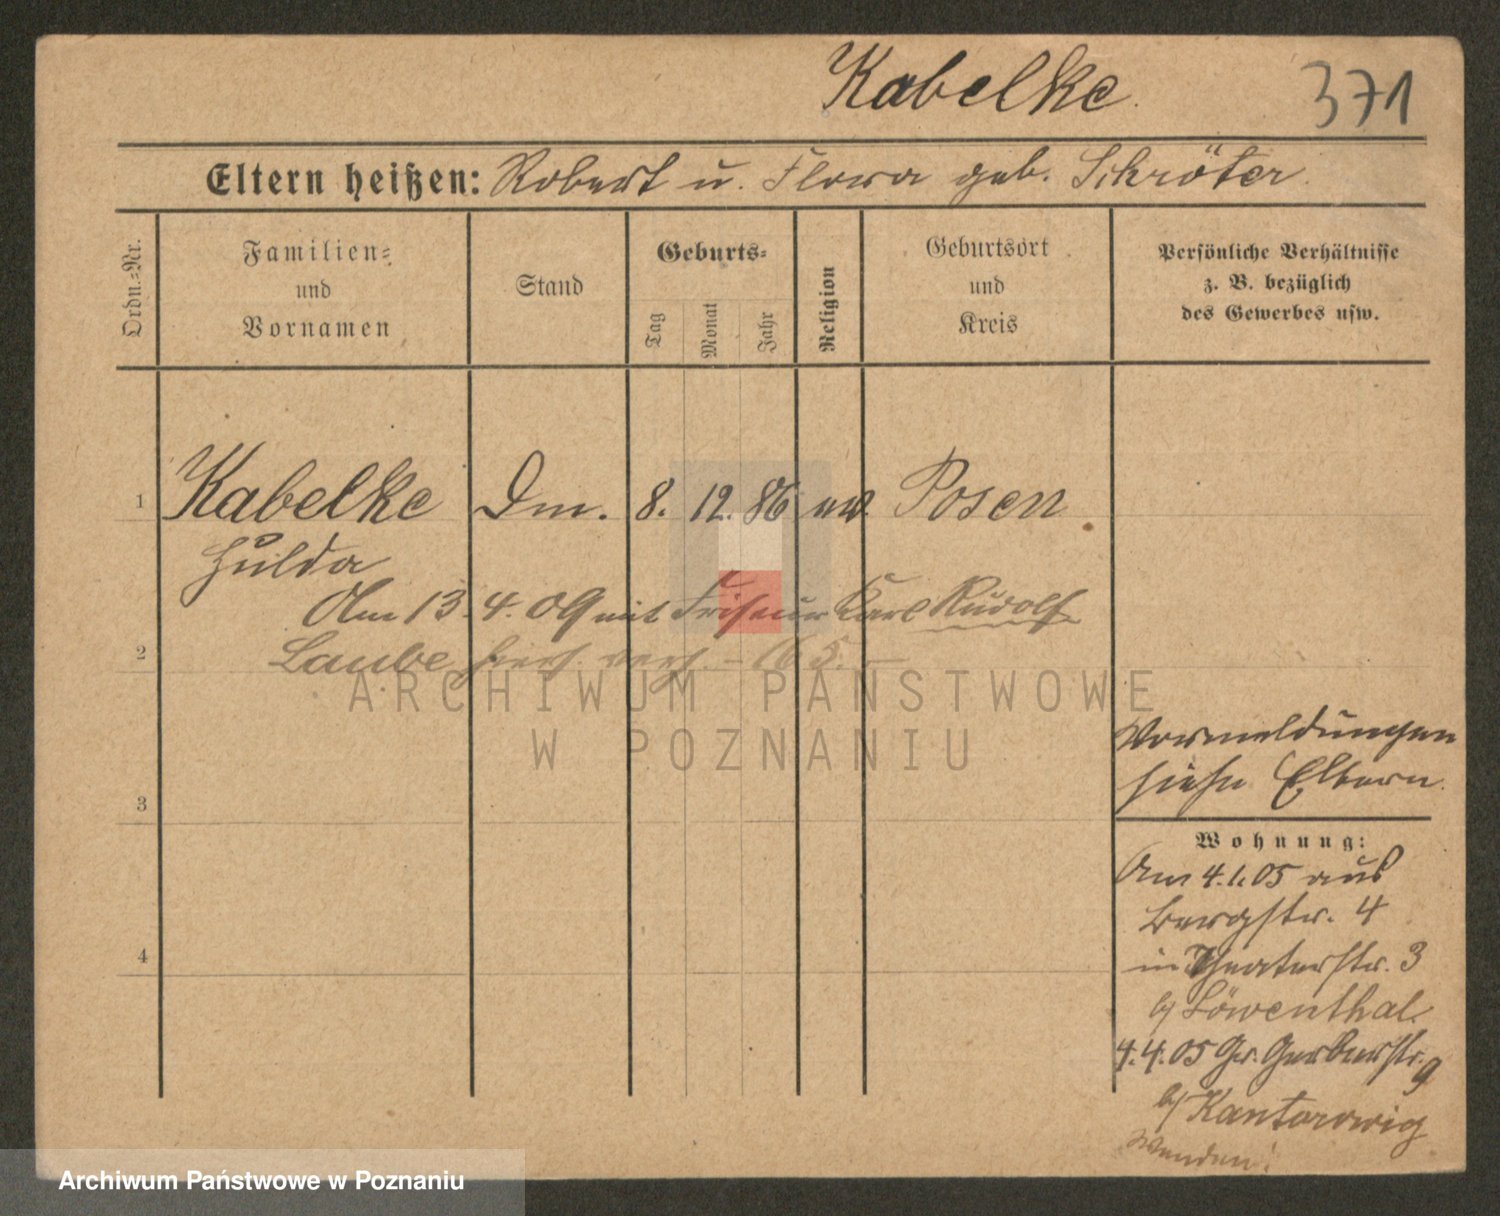 Kabelke.
371
Eltern heißen: Robert u. Flora geb. Schröter.
Ordn.=Nr.
Familien=
und
Vornamen
Stand
Geburts=
Tag
Monat
Jahr
Religion
Geburtsort
und
Kreis
Persönliche Verhältnisse
z. B. bezüglich
des Gewerbes usw.
1 Kabelke Dm. 8. 12. 86 ev. Posen
Hulda
Am 13.4.09 mit Friseur Karl Rudolf
2
Laube hier verh. -
ARCHIWUM PAŃSTWOWE
W POZNANIU
Vormeldungen
siehe Eltern.
3
Wohnung:
Am 4.1.05 aus
Bergstr. 4
in Theaterstr. 3
b/ Löwenthal.
4
4.4.05 Gr. Gerberstr. 9
b/ Kantorowig
Wenden!
Archiwum Państwowe w Poznaniu